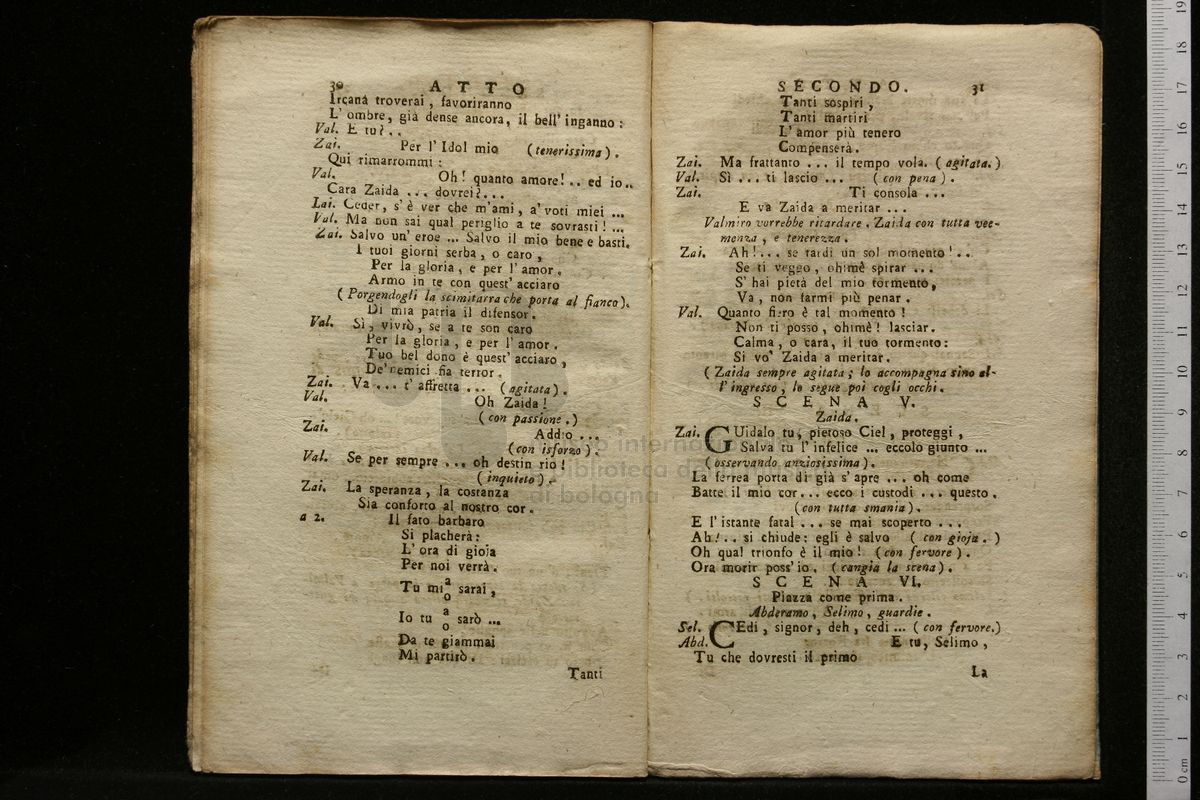 30 ATTO
Ircana troverai, favoriranno
L'ombre, già dense ancora, il bell'inganno:
Val. E tu?..
Zai. Per l'Idol mio (tenerissima).
Qui rimarrommi:
Val. Oh! quanto amore!.. ed io..
Cara Zaida ... dovrei?...
Zai. Ceder, s'è ver che m'ami, a'voti miei ...
Val. Ma non sai qual periglio a te sovrasti! ...
Zai. Salvo un'eroe ... Salvo il mio bene e basti.
I tuoi giorni serba, o caro,
Per la gloria, e per l'amor.
Armo in te con quest'acciaro
(Porgendogli la scimitarra che porta al fianco).
Di mia patria il difensor.
Val. Sì, vivrò, se a te son caro
Per la gloria, e per l'amor.
Tuo bel dono è quest'acciaro,
De'nemici fia terror.
Zai. Va ... t'affretta ... (agitata).
Val. Oh Zaida!
(con passione.)
Zai. Addio ...
(con isforzo).
Val. Se per sempre ... oh destin rio!
(inquieto).
Zai. La speranza, la costanza
Sia conforto al nostro cor.
a 2. Il fato barbaro
Si placherà:
L'ora di gioia
Per noi verrà.
Tu mi a/o sarai,
Io tu a/o sarò ...
Da te giammai
Mi partirò.
Tanti
SECONDO. 31
Tanti sospiri,
Tanti martiri
L'amor più tenero
Compenserà.
Zai. Ma frattanto ... il tempo vola. (agitata.)
Val. Sì ... ti lascio ... (con pena).
Zai. Ti consola ...
E va Zaida a meritar ...
Valmiro vorrebbe ritardare. Zaida con tutta vee-
menza, e tenerezza.
Zai. Ah!... se tardi un sol momento!..
Se ti veggo, ohimè spirar ...
S'hai pietà del mio tormento,
Va, non farmi più penar.
Val. Quanto fiero è tal momento!
Non ti posso, ohimè! lasciar.
Calma, o cara, il tuo tormento:
Si vo' Zaida a meritar.
(Zaida sempre agitata; lo accompagna sino al-
l'ingresso, lo segue poi cogli occhi.
SCENA V.
Zaida.
Zai. GUidalo tu, pietoso Ciel, proteggi,
Salva tu l'infelice ... eccolo giunto ...
(osservando anziosissima).
La ferrea porta di già s'apre ... oh come
Batte il mio cor... ecco i custodi ... questo.
(con tutta smania).
E l'istante fatal ... se mai scoperto ...
Ah!.. si chiude: egli è salvo (con gioja.)
Oh qual trionfo è il mio! (con fervore).
Ora morir poss'io. (cangia la scena).
SCENA VI.
Piazza come prima.
Abderamo, Selimo, guardie.
Sel. CEdi, signor, deh, cedi ... (con fervore.)
Abd. E tu, Selimo,
Tu che dovresti il primo
La
museo internazionale
biblioteca della musica
di bologna
0 cm 1 2 3 4 5 6 7 8 9 10 11 12 13 14 15 16 17 18 19